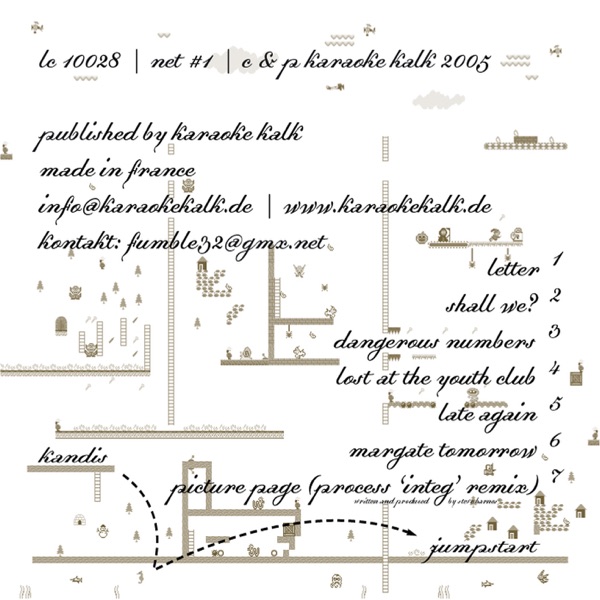 lc 10028 | net #1 | c & p karaoke kalk 2005
published by karaoke kalk
made in france
info@karaokekalk.de | www.karaokekalk.de
kontakt: fumble32@gmx.net
letter 1
shall we? 2
dangerous numbers 3
lost at the youth club 4
late again 5
margate tomorrow 6
kandis
picture page (process 'integ' remix) 7
written and produced by
jumpstart